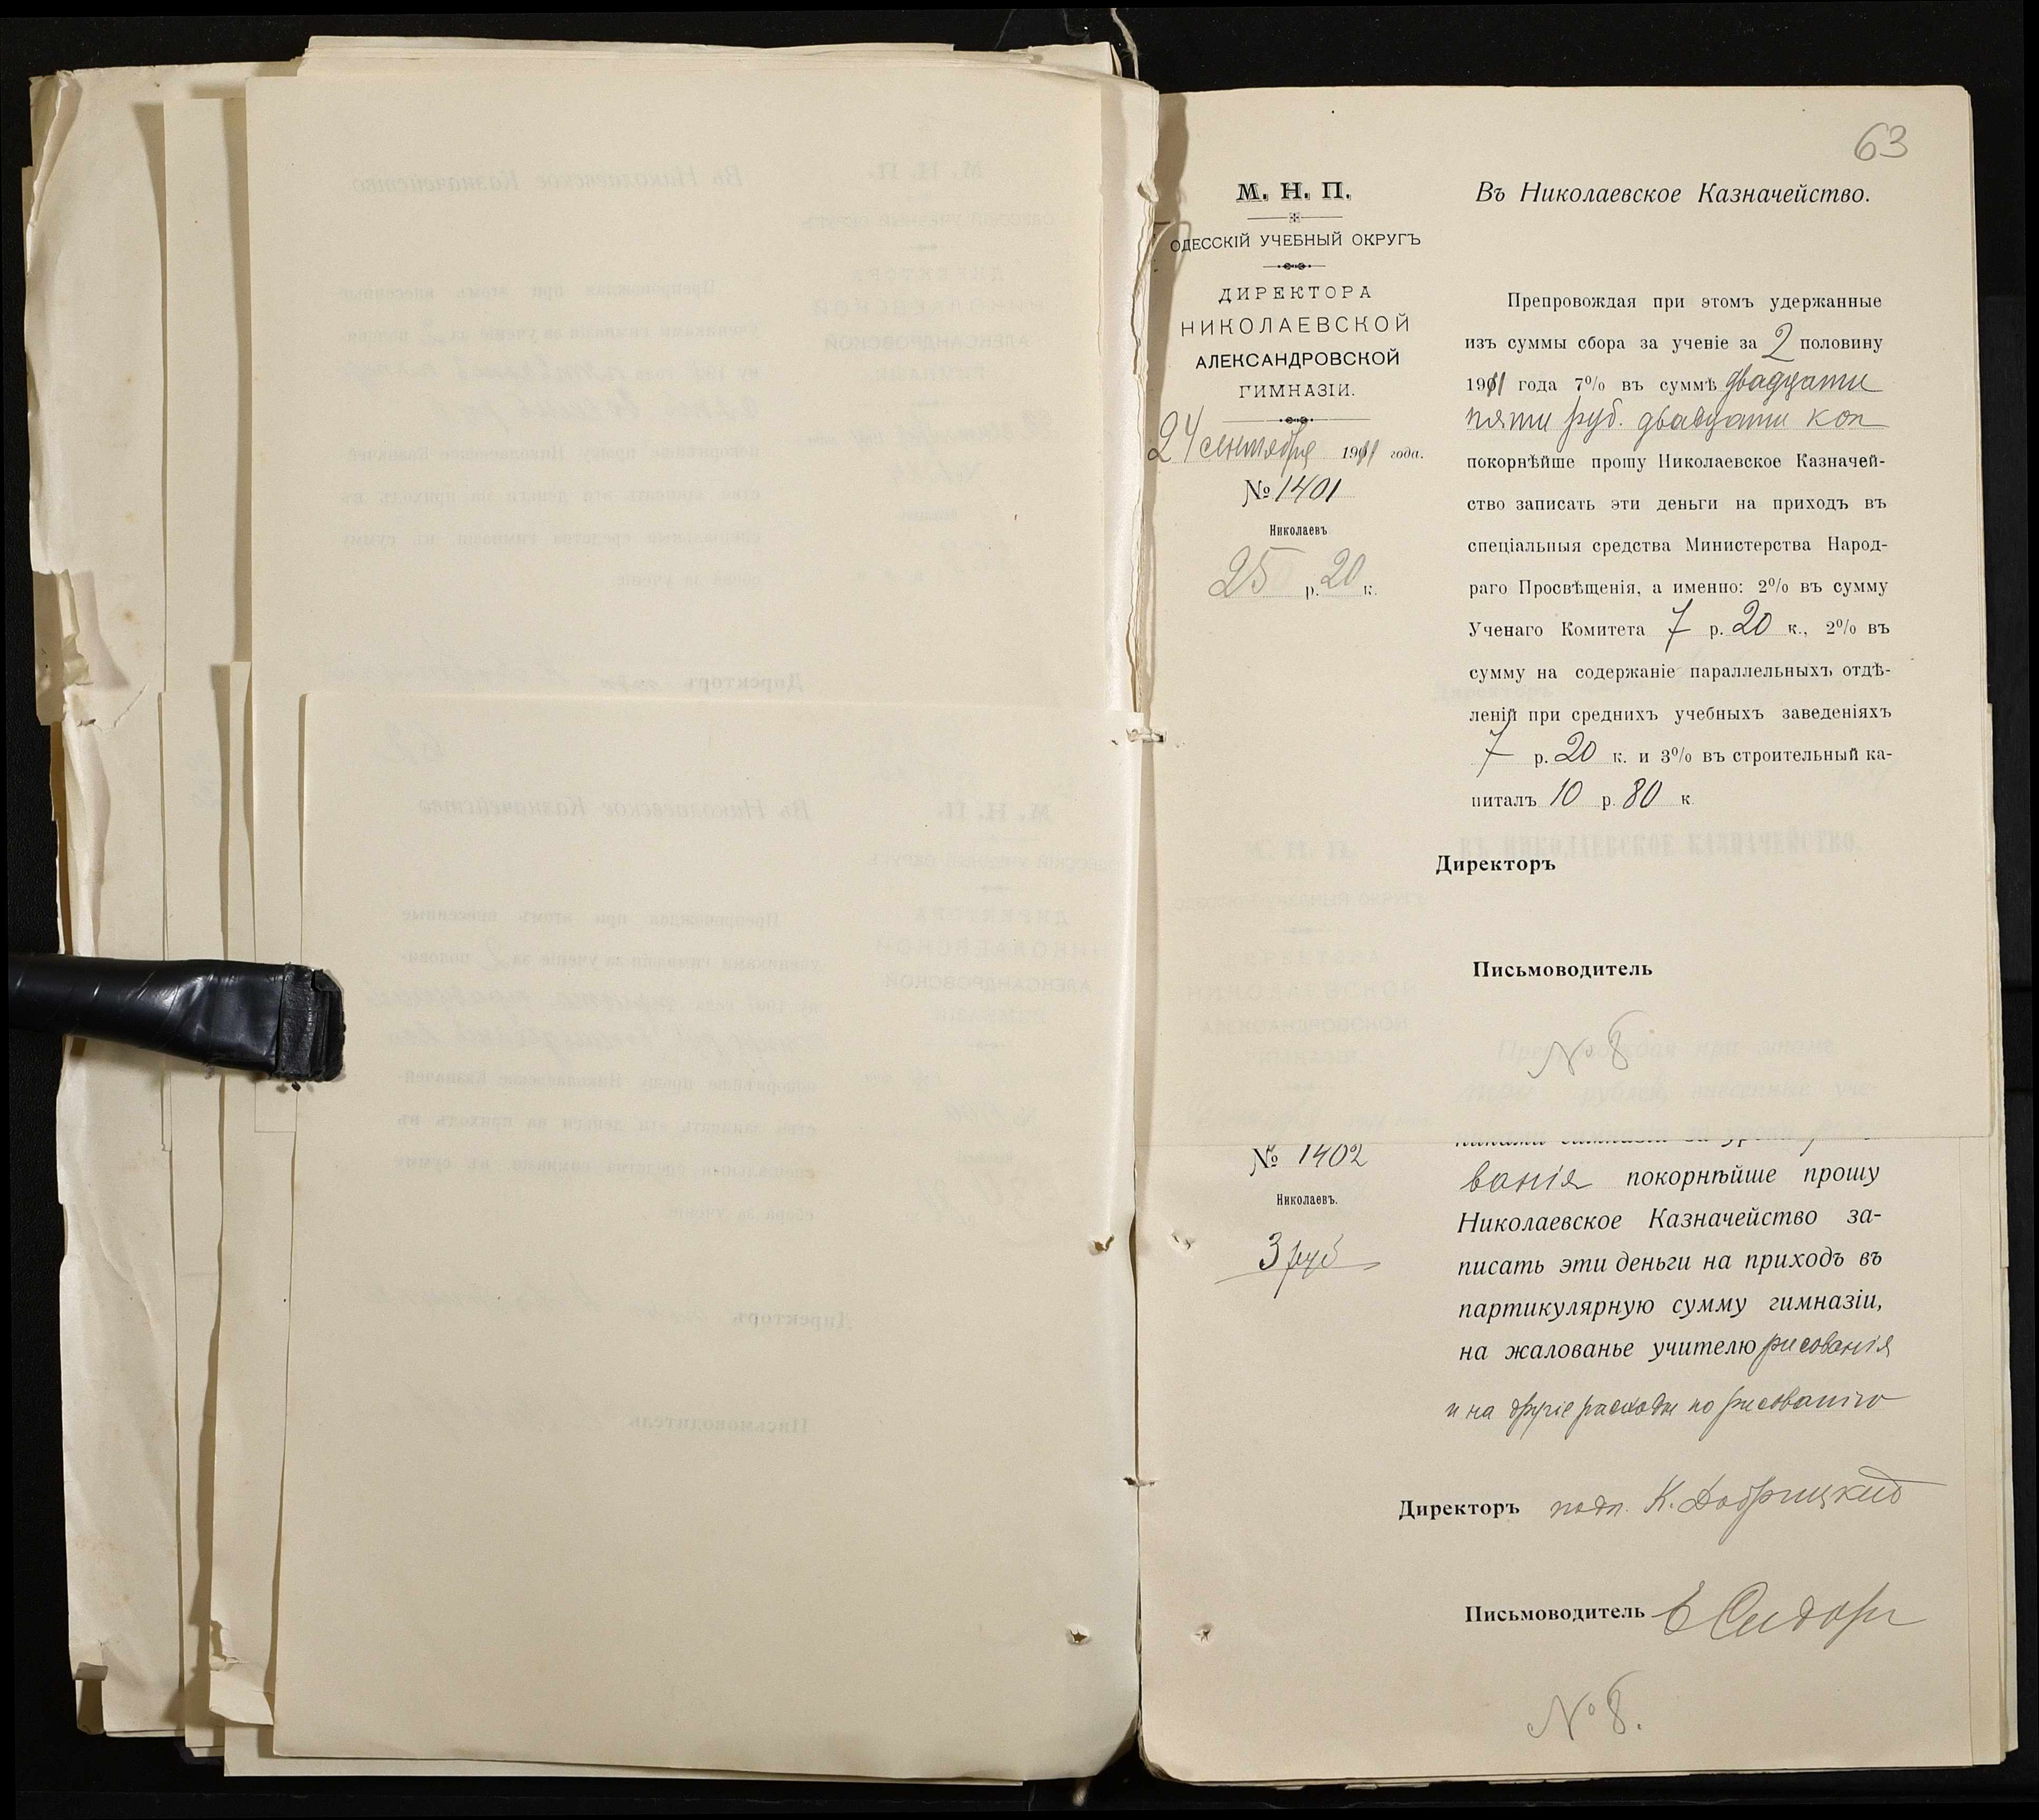 63
М. Н. П.
ОДЕССКІЙ УЧЕБНЫЙ ОКРУГЪ
ДИРЕКТОРА
НИКОЛАЕВСКОЙ
АЛЕКСАНДРОВСКОЙ
ГИМНАЗІИ.
24 сентября 1911 года.
№ 1401
Николаевъ
25 р. 20 к.
Въ Николаевское Казначейство.
Препровождая при этомъ удержанные
изъ суммы сбора за ученіе за 2 половину
1911 года 7% въ суммѣ двадцати
пяти руб. двадцати коп
покорнѣйше прошу Николаевское Казначей-
ство записать эти деньги на приходъ въ
спеціальныя средства Министерства Народ-
раго Просвѣщенія, а именно: 2% въ сумму
Ученаго Комитета 7 р. 20 к., 2% въ
сумму на содержаніе параллельныхъ отдѣ-
леній при среднихъ учебныхъ заведеніяхъ
7 р. 20 к. и 3% въ строительный ка-
питалъ 10 р. 80 к.
Директоръ
Письмоводитель
№ 8
№ 1402
Николаевъ.
3 руб
ванія покорнѣйше прошу
Николаевское Казначейство за-
писать эти деньги на приходъ въ
партикулярную сумму гимназіи,
на жалованье учителю рисованія
и на другіе расходы по рисованію
Директоръ подп. К. Добрицкій
Письмоводитель Е Сидор
№ 8.